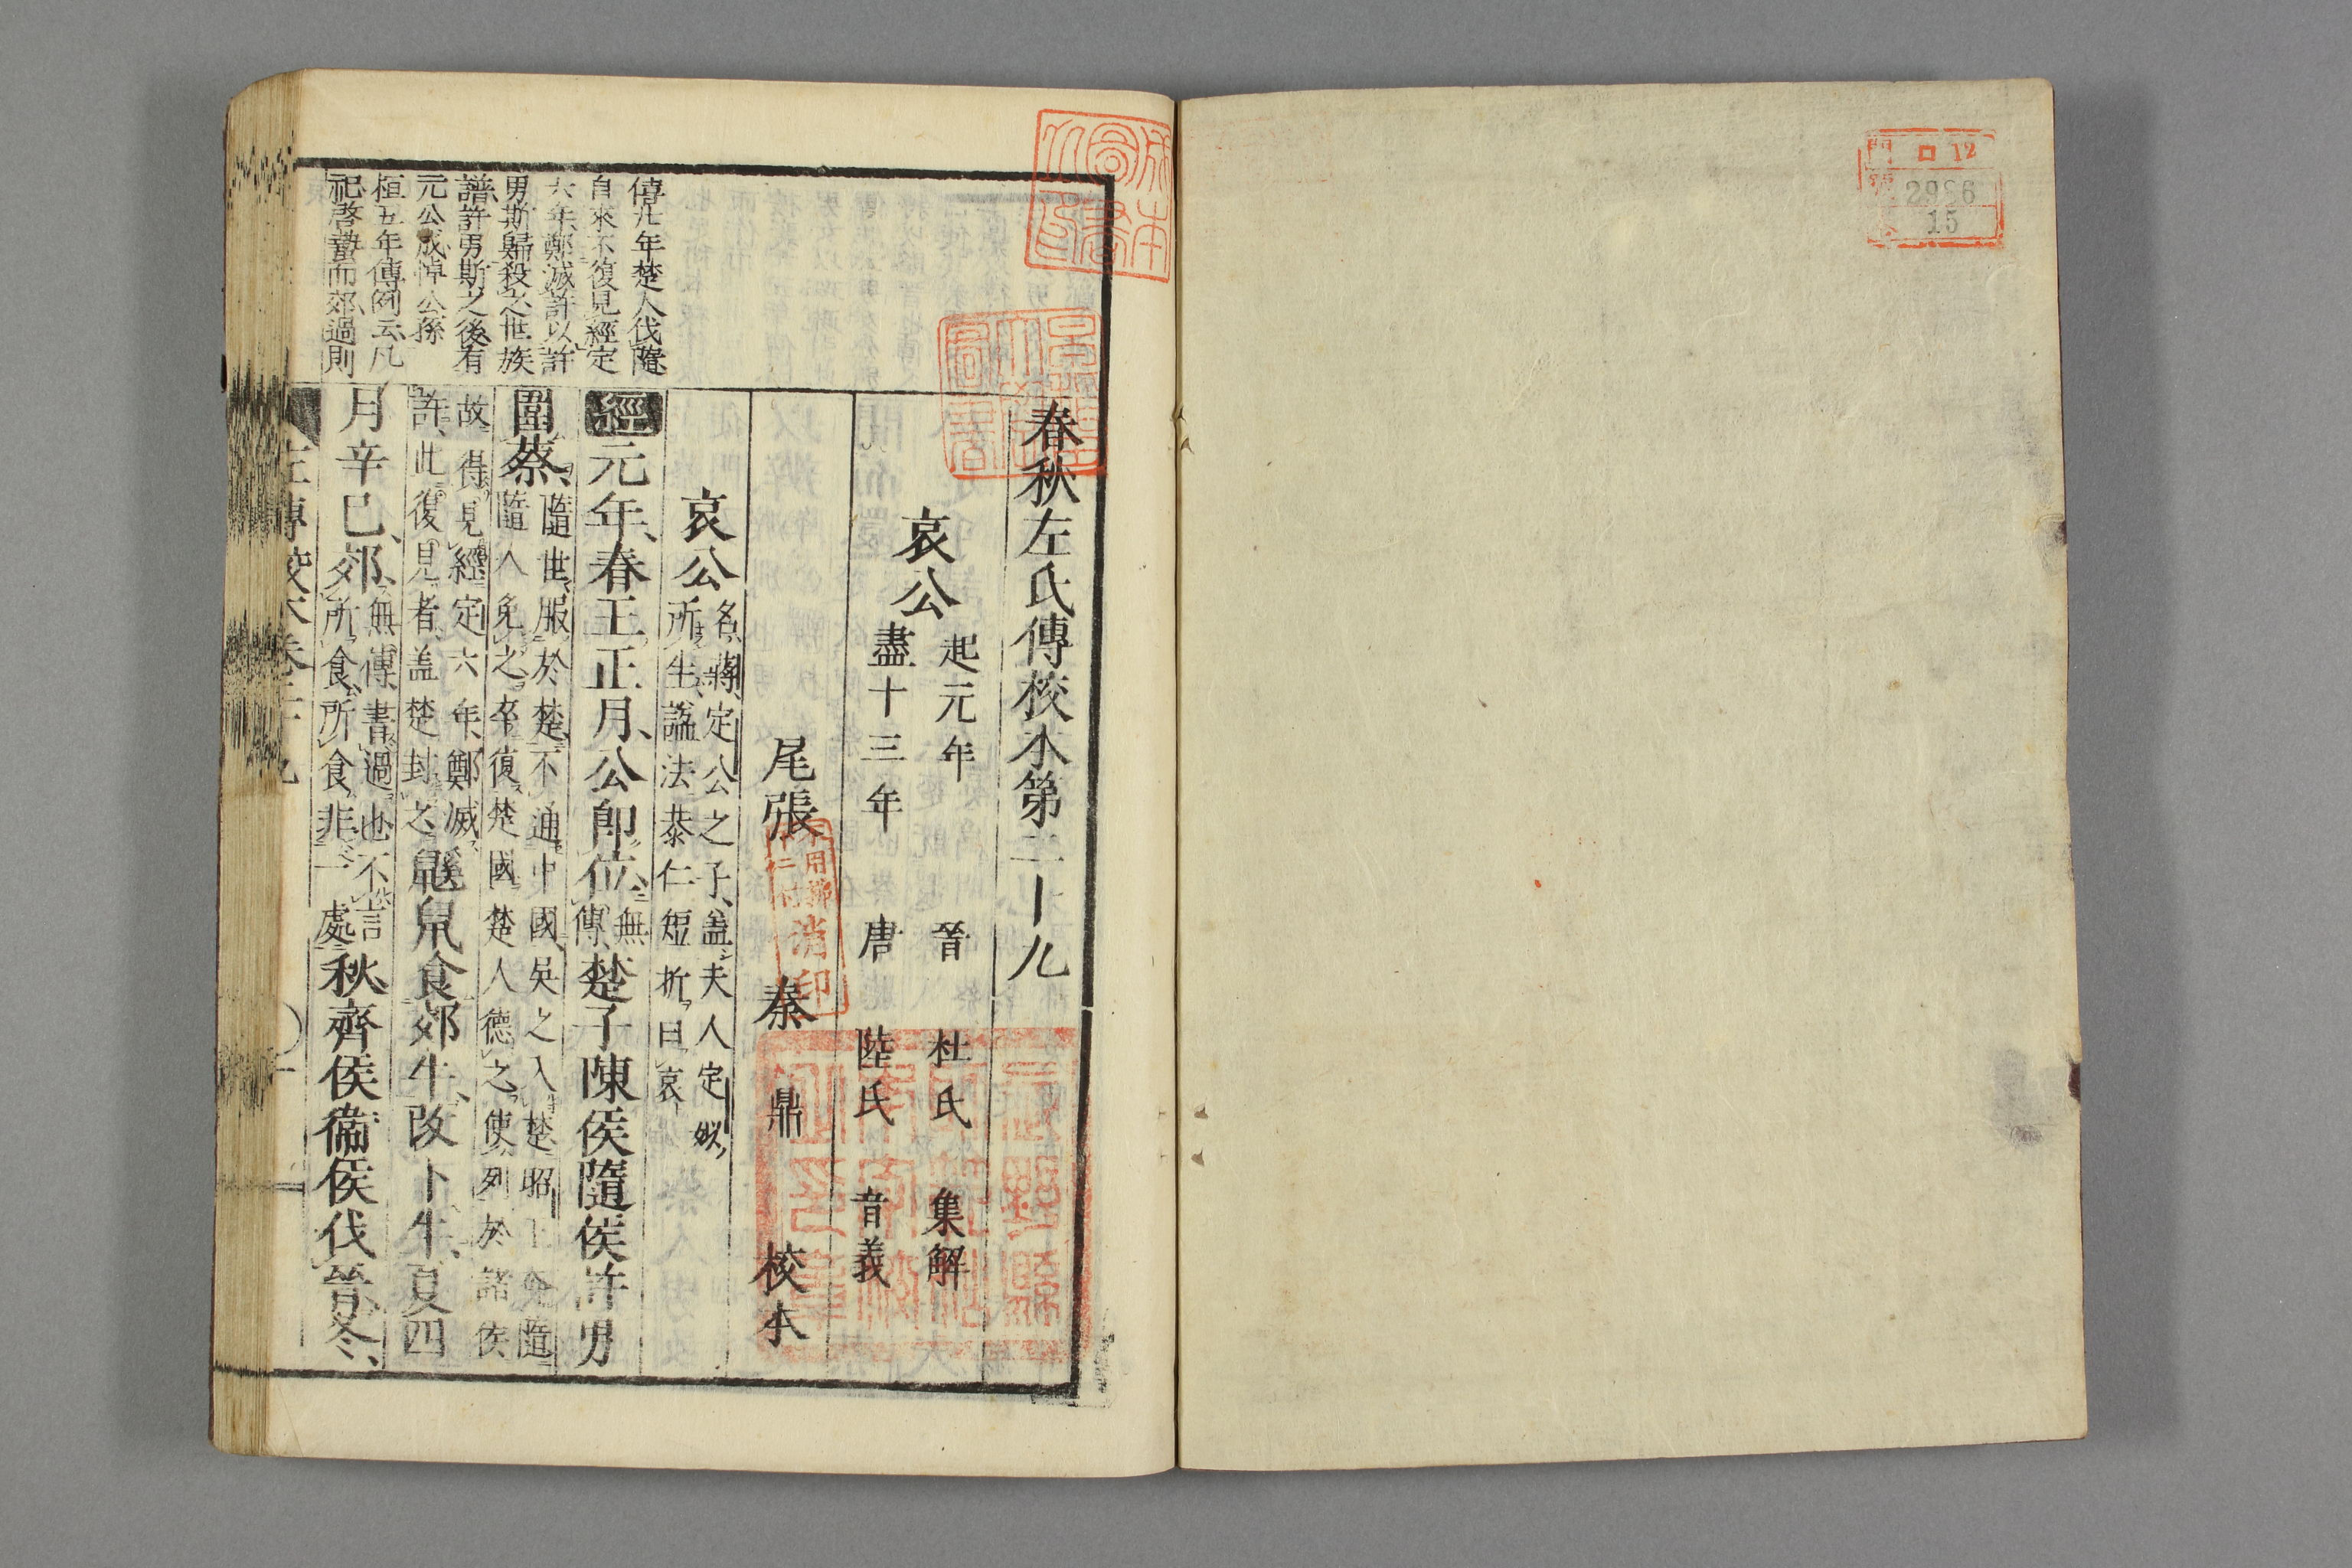 門 ロ 12
號 2986
15
春秋左氏傳校本第二十九
哀公
起元年
盡十三年
晉 杜氏 集解
唐 陸氏 音義
尾張 秦 鼎 校本
哀公
名蔣、定公之子、蓋夫人定姒
所生、諡法、恭仁短折曰哀
經元年、春王正月、公即位、
無
傳、
楚子陳侯隨侯許男
圍蔡、
隨世服於楚、不通中國、吳之入楚、昭王奔隨、
隨人免之、卒復楚國、楚人德之、使列於諸侯、
故得見經、定六年、鄭滅
許、此復見者、蓋楚封之、
鼷鼠食郊牛、改卜牛、夏四
月辛巳、郊、
無傳、書過也、不言
所食、所食非一處、
秋齊侯衞侯伐晉、冬、
僖廿年楚人伐隨
自來不復見經定
六年鄭滅許以許
男斯歸殺之世族
譜許男斯之後有
元公成悼公孫
桓五年傳例云凡
祀啓蟄而郊過則
左傳校本卷二十九
消印